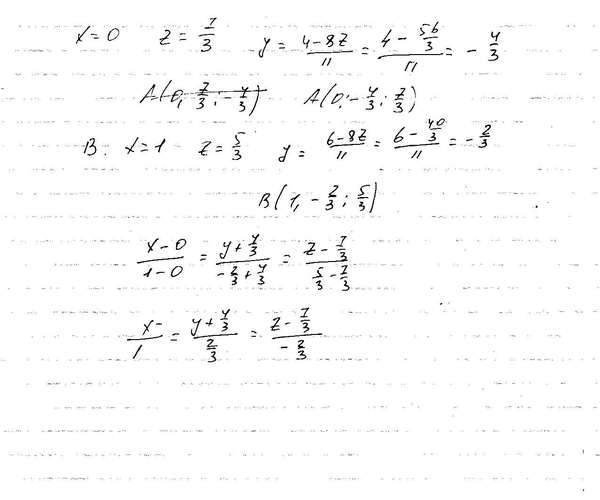 x=0 z=7/3 y=(4-8z)/11=(4-56/3)/11=-4/3
A(0; 7/3; -4/3) A(0; -4/3; 7/3)
B: x=1 z=5/3 y=(6-8z)/11=(6-40/3)/11=-2/3
B(1, -2/3; 5/3)
(x-0)/(1-0)=(y+4/3)/(-2/3+4/3)=(z-7/3)/(5/3-7/3)
x-/1=(y+4/3)/(2/3)=(z-7/3)/(-2/3)